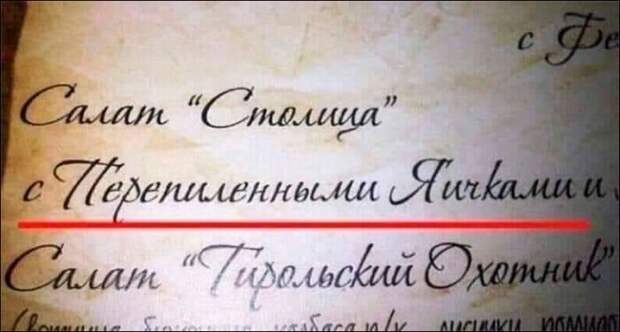 с Фе
Салат “Столица”
с Перепиленными Яичками и
Салат “Тирольский Охотник”